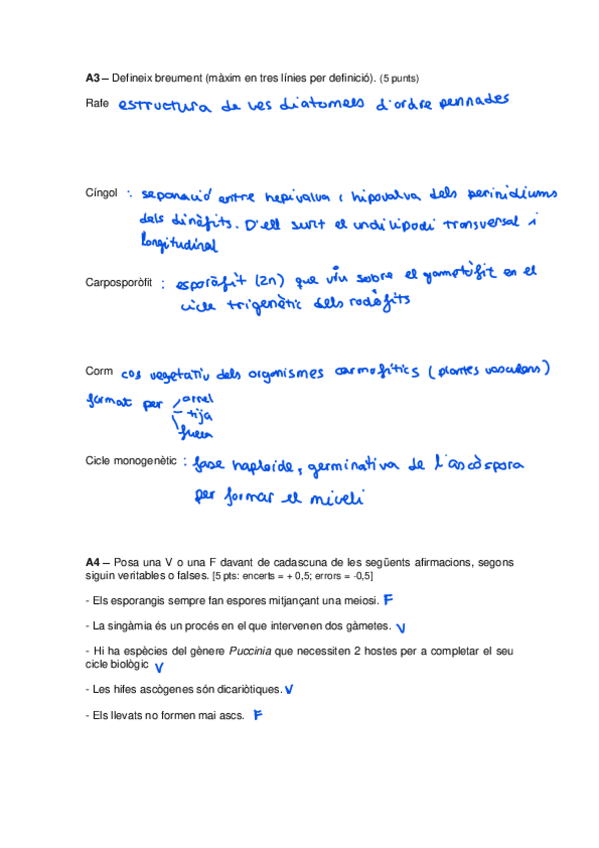 A3 – Defineix breument (màxim en tres línies per definició). (5 punts)
Rafe estructura de les diatomees d'ordre pennades
Cíngol : separació entre l'epivalva i hipovalva dels perinidiums
dels dinòfits. D'ell surt el undilipodi transversal i
longitudinal
Carposporòfit : esporòfit (2n) que viu sobre el gametòfit en el
cicle trigenètic dels rodòfits
Corm cos vegetatiu dels organismes cormofítics (plantes vasculars)
format per arrel
tija
fulla
Cicle monogenètic : fase haploide, germinativa de l'ascòspora
per formar el miceli
A4 – Posa una V o una F davant de cadascuna de les següents afirmacions, segons
siguin veritables o falses. [5 pts: encerts = + 0,5; errors = -0,5]
- Els esporangis sempre fan espores mitjançant una meiosi. F
- La singàmia és un procés en el que intervenen dos gàmetes. V
- Hi ha espècies del gènere Puccinia que necessiten 2 hostes per a completar el seu
cicle biològic V
- Les hifes ascògenes són dicariòtiques. V
- Els llevats no formen mai ascs. F